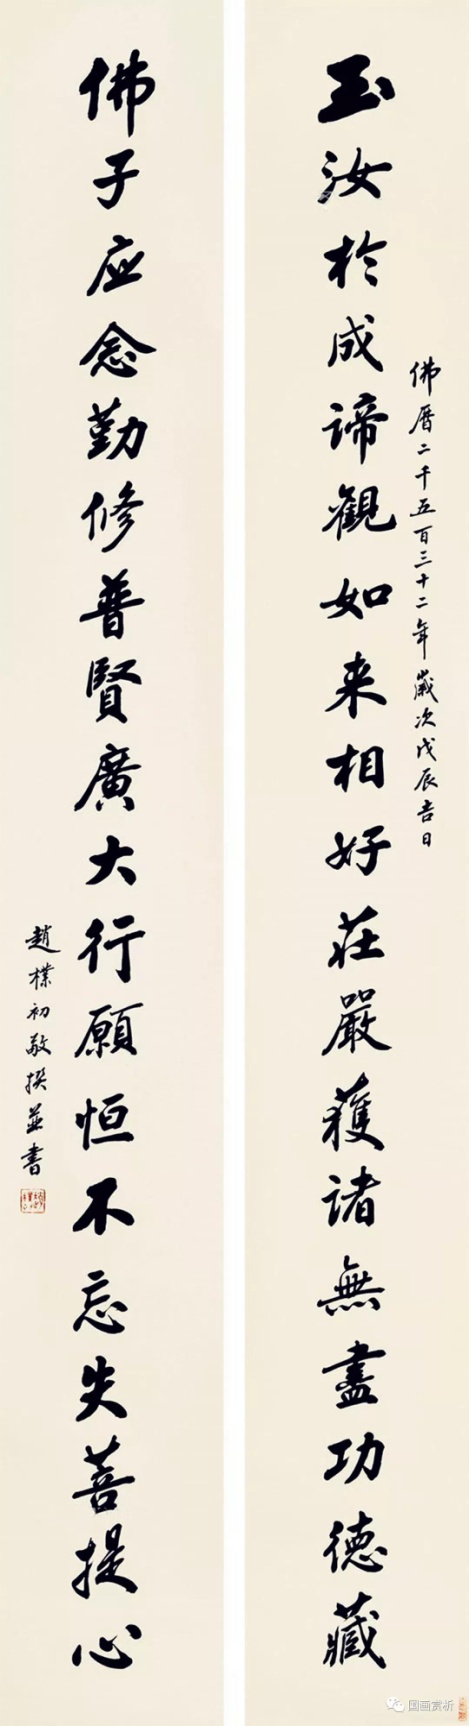 佛曆二千五百三十二年歲次戊辰吉日
玉汝於成諦觀如来相好莊嚴獲諸無盡功德藏
佛子应念勤修普賢廣大行願恒不忘失菩提心
趙樸初敬撰並書
国画赏析